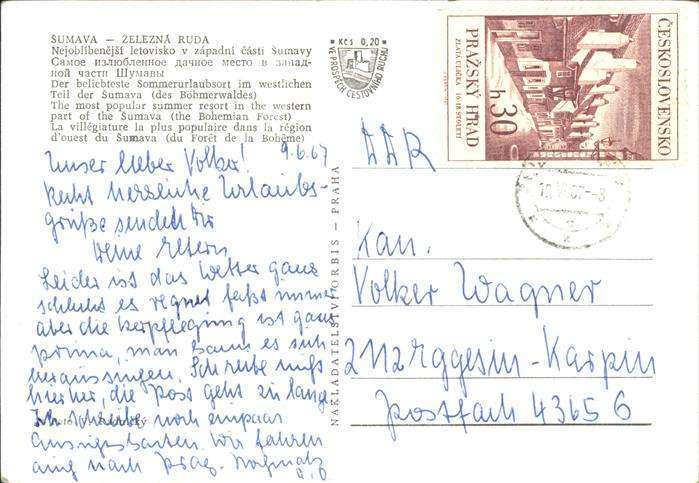 ŠUMAVA — ŽELEZNÁ RUDA
Nejoblíbenější letovisko v západní části Šumavy
Самое излюбленное дачное место в запад-
ной части Шумавы
Der beliebteste Sommerurlaubsort im westlichen
Teil der Šumava (des Böhmerwaldes)
The most popular summer resort in the western
part of the Šumava (the Bohemian Forest)
La villégiature la plus populaire dans la région
d'ouest du Šumava (du Forêt de la Bohême)
Unser lieber Volker! 9.6.67
Recht herzliche Urlaubs-
grüße senden Dir
Deine Eltern
Leider ist das Wetter ganz
schlecht es regnet fast immer
aber die Verpflegung ist ganz
prima, man kann es sich
heraussingen. Schreibe nicht
hierher, die Post geht zu lange
Ich schreibe noch ein paar
Ansichtskarten wir fahren
auch nach Prag. Nochmals
NAKLADATELSTVÍ ORBIS — PRAHA
Kčs 0,20
VE PROSPĚCH CESTOVNÍHO RUCHU
ČESKOSLOVENSKO
PRAŽSKÝ HRAD
ZLATÁ ULIČKA 16-18 STOLETÍ
h 30
DDR
Kan.
Volker Wagner
2112 Eggesin-Karpin
Postfach 43656